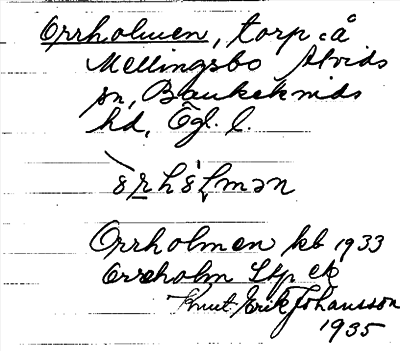 Orrholmen, torp å
Mellingsbo Atvids
sn, Bankekinds
hd, Ögl. l.
Orrholmen kb 1933
Orreholm Stp ek
Knut-Erik Johansson
1935